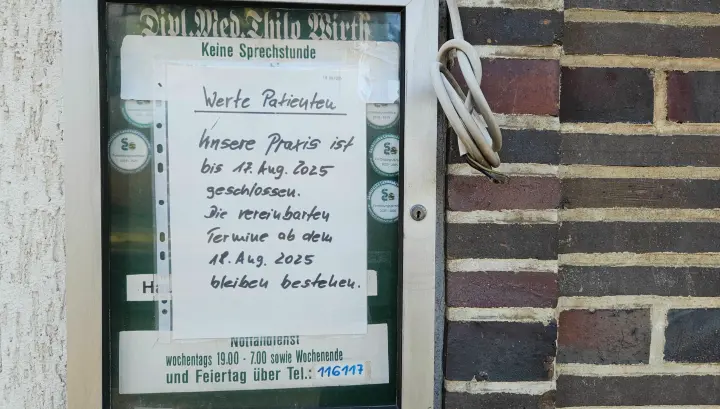 Dipl.Med.Thilo Wirth
Keine Sprechstunde
Werte Patienten
Unsere Praxis ist
bis 17. Aug. 2025
geschlossen.
Die vereinbarten
Termine ab dem
18. Aug. 2025
bleiben bestehen.
Ha
Notfalldienst
wochentags 19.00 - 7.00 sowie Wochenende
und Feiertag über Tel.: 116117